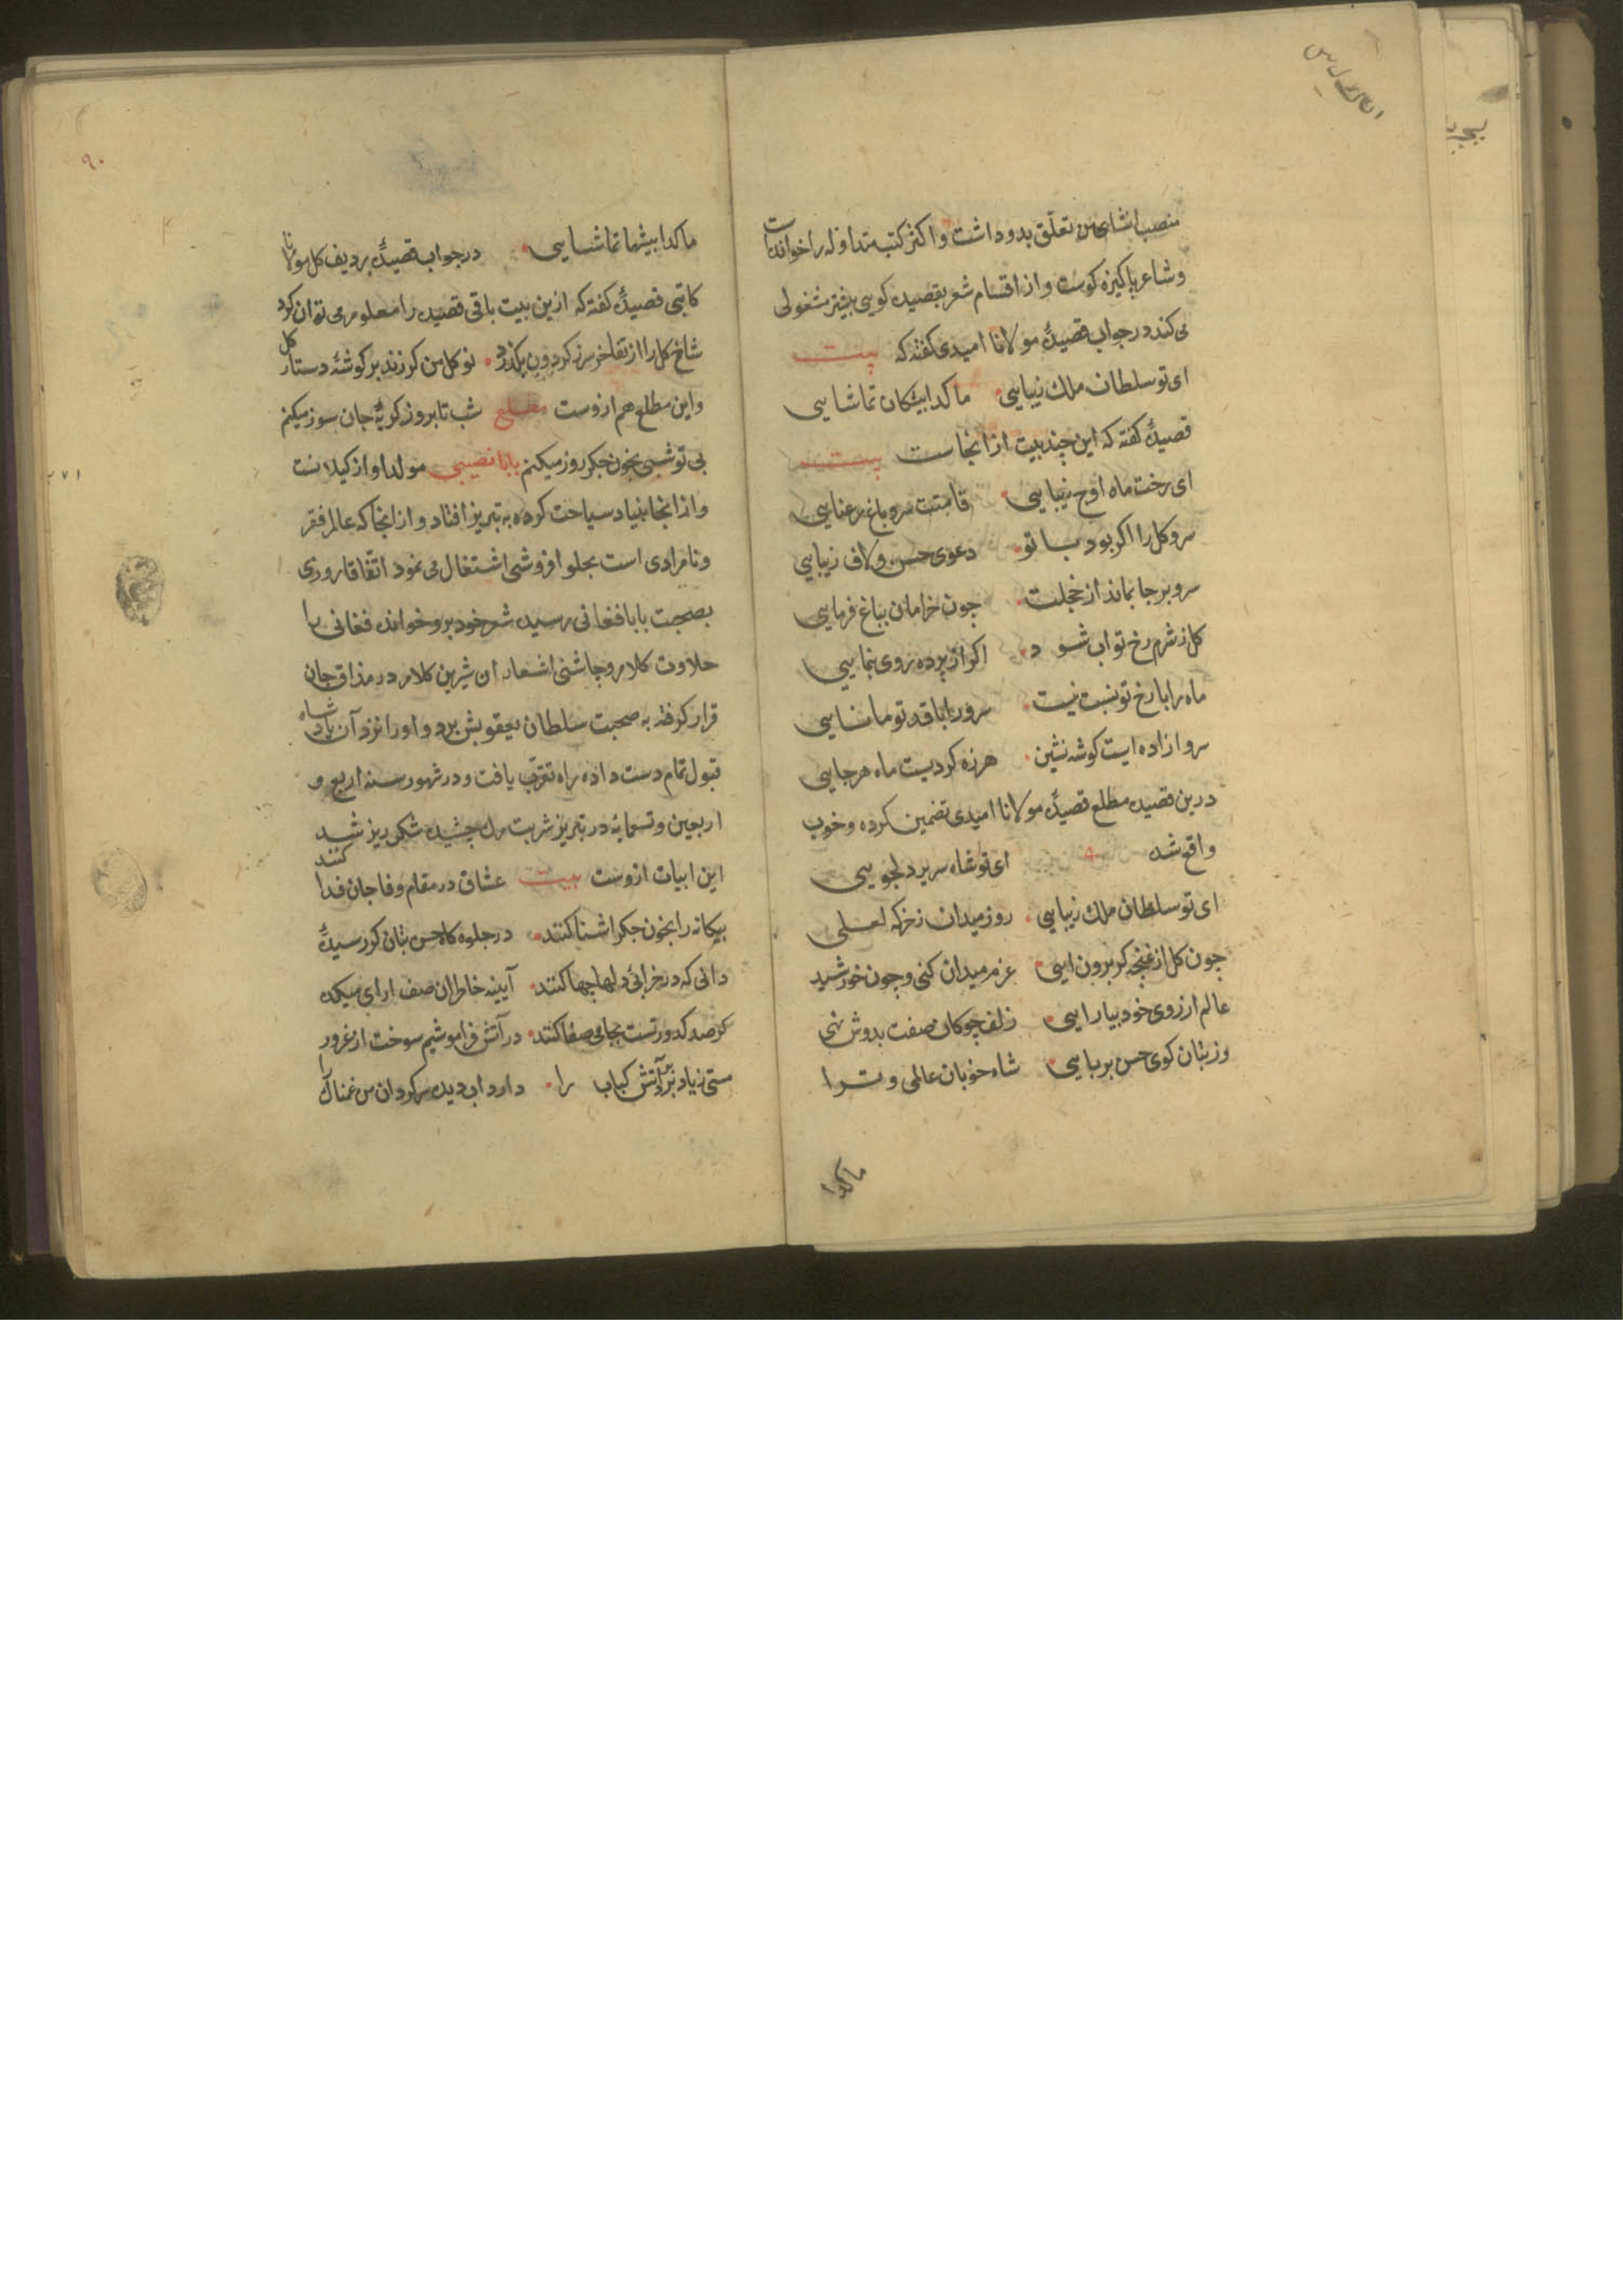 منصب انشای من تعلق بدو داشت و اکثر کتب متداوله را خوانده است
و شاعر پاکیزه کوست و از اقسام شعر بقصیده کویی بیشتر مشغولی
می کند در جواب قصیدهٔ مولانا امیدی کفته که بیت
ای تو سلطان ملک زیبایی ماکدا پیشکان تماشایی
قصیدهٔ کفته که این چند بیت از انجاست بیت
ای رخت ماه اوج زیبایی قامتت سرو باغ رعنایی
سرو کل را اکر بود با تو دعوی حسن و لاف زیبایی
سرو بر جا بماند از خجلت چون خرامان بباغ فرمایی
کل ز شرم رخ تو اب شود اکر از پرده روی بنمایی
ماه را با رخ تو نسبت نیست سرو را با قد تو مانایی
سرو ازاده ایست کوشه نشین هرزه کردیست ماه هرجایی
درین قصیده مطلع قصیدهٔ مولانا امیدی تضمین کرده و خوب
واقع شده ای تو شاه سریر دلجویی
ای تو سلطان ملک زیبایی روز میدان زخرکه لعلی
چون کل از غنچه کر برون ایی عزم میدان کنی و چون خورشید
عالم از روی خود بیارایی زلف چوکان صفت بدوش نهی
وز بتان کوی حسن بربایی شاه خوبان عالمی و ترا
ماکدا
۹۰
ماکدا بیشها تماشایی در جواب قصیدهٔ بردیف کل مولانا
کاتبی قصیدهٔ کفته که ازین بیت باقی قصیده را معلوم می توان کرد
شاخ کل را از تفاخر سر ز کردون بکذرد نو کل من کر زند بر کوشهٔ دستار کل
واین مطلع هم ازوست مطلع شب تا بروز کریهٔ جان سوز میکنم
بی تو شبی بخون جکر روز میکنم بابا نصیبی مولد او از کیلانست
و از انجا بنیاد سیاحت کرده به تبریز افتاد و از انجا که عالم فقر
و نامرادی است بحلوا فروشی اشتغال می نمود اتفاقا روزی
بصحبت بابا فغانی رسیده شعر خود برو خوانده فغانی را
حلاوت کلام و چاشنی اشعار ان شیرین کلام در مذاق جان
قرار کرفته به صحبت سلطان یعقوبش برد و او را نزد آن پادشاه
قبول تمام دست داده راه تقرب یافت و در شهور سنه اربع و
اربعین و تسعمایه در تبریز شربت مرک چشیده شکر ریز شد
این ابیات ازوست بیت عشاق در مقام وفا جان فدا کنند
بیکانه را بخون جکر اشنا کنند در جلوه کاه حسن بتان کر رسیدهٔ
دانی که در خرابی دلها چها کنند آیینه خاطران صف ارای میکده
کر صد کدورتست بجامی صفا کنند در آتش فراموشیم سوخت از غرور
مستی زیاد بر آتش کباب را دارد اب دیده سرکردان من غمناک را